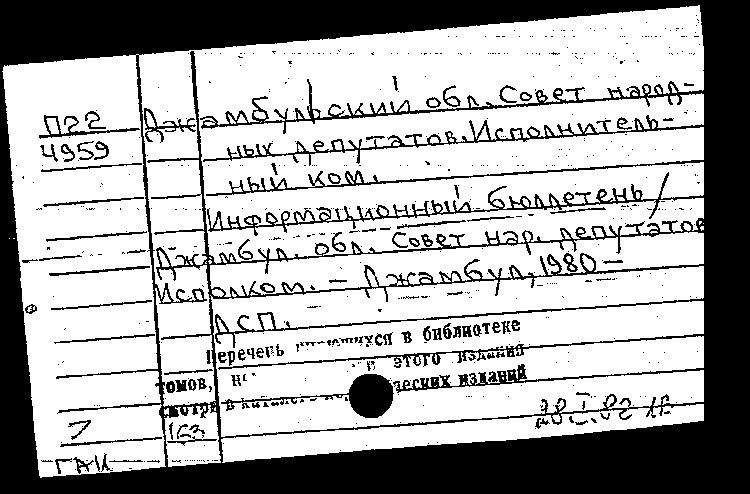 П22
4959
Джамбульский обл. Совет народ-
ных депутатов. Исполнитель-
ный ком.
Информационный бюллетень /
Джамбул. обл. Совет нар. депутатов
Исполком. – Джамбул, 1980 –
ДСП.
Перечень в библиотеке
томов, этого издания
смотри в изданий
163
ГАИ